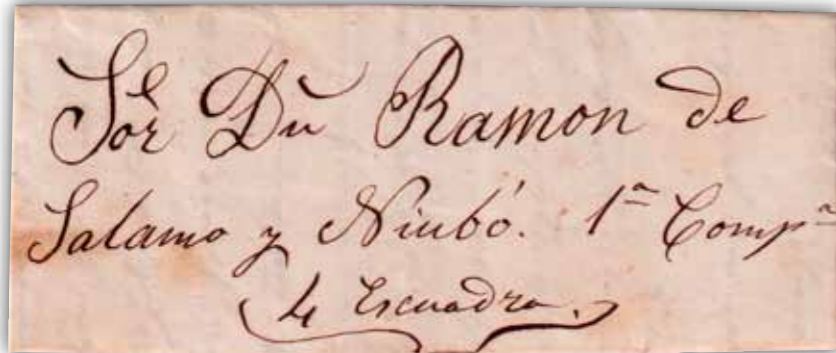 Sor Dn Ramon de
Salamo y Niubó. 1ª Compª
4 Escuadra.